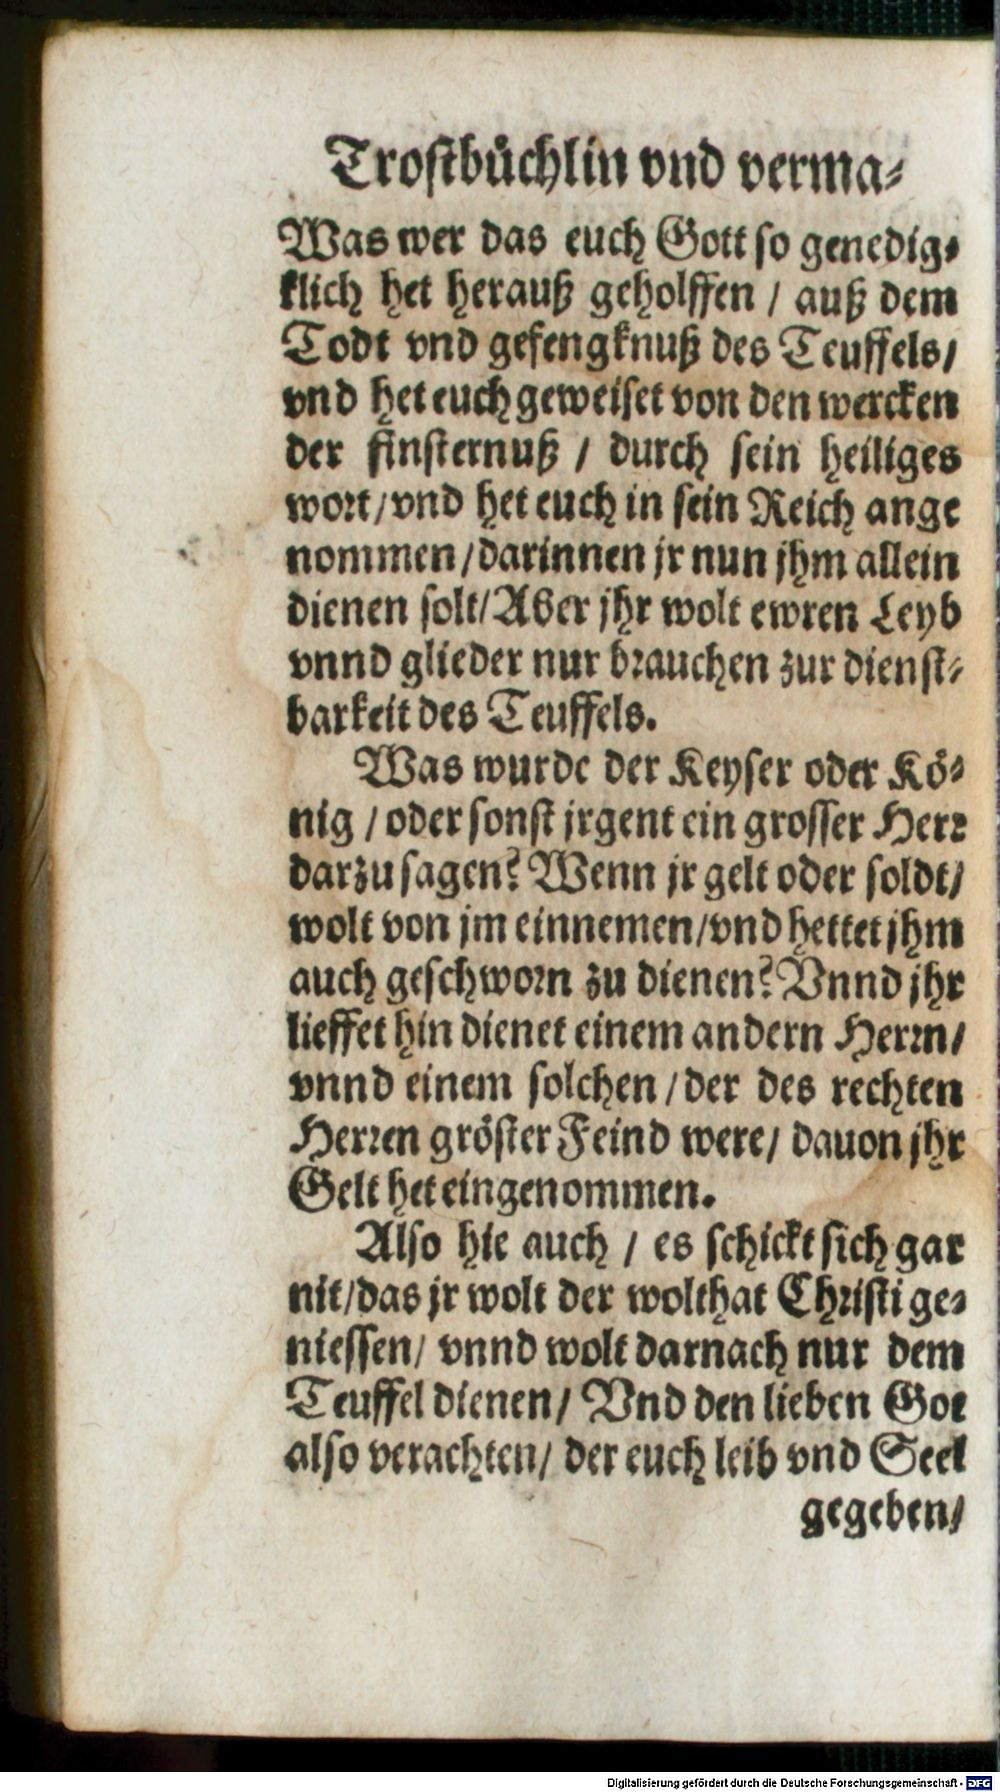 Trostbuͤchlin vnd verma⸗
Was wer das euch Gott so genedig⸗
klich het herauß geholffen / auß dem
Todt vnd gefengknuß des Teuffels/
vnd het euch geweiset von den wercken
der finsternuß / durch sein heiliges
wort/vnd het euch in sein Reich ange
nommen/darinnen jr nun jhm allein
dienen solt/Aber jhr wolt ewren Leyb
vnnd glieder nur brauchen zur dienst⸗
barkeit des Teuffels.
Was wurde der Keyser oder Kö⸗
nig / oder sonst jrgent ein grosser Herr
darzu sagen? Wenn jr gelt oder soldt/
wolt von jm einnemen/vnd hettet jhm
auch geschworn zu dienen? Vnnd jhr
lieffet hin dienet einem andern Herrn/
vnnd einem solchen / der des rechten
Herren gröster Feind were/ dauon jhr
Gelt het eingenommen.
Also hie auch / es schickt sich gar
nit/das jr wolt der wolthat Christi ge⸗
niessen/ vnnd wolt darnach nur dem
Teuffel dienen/ Vnd den lieben Got
also verachten/ der euch leib vnd Seel
gegeben/
Digitalisierung gefördert durch die Deutsche Forschungsgemeinschaft - DFG